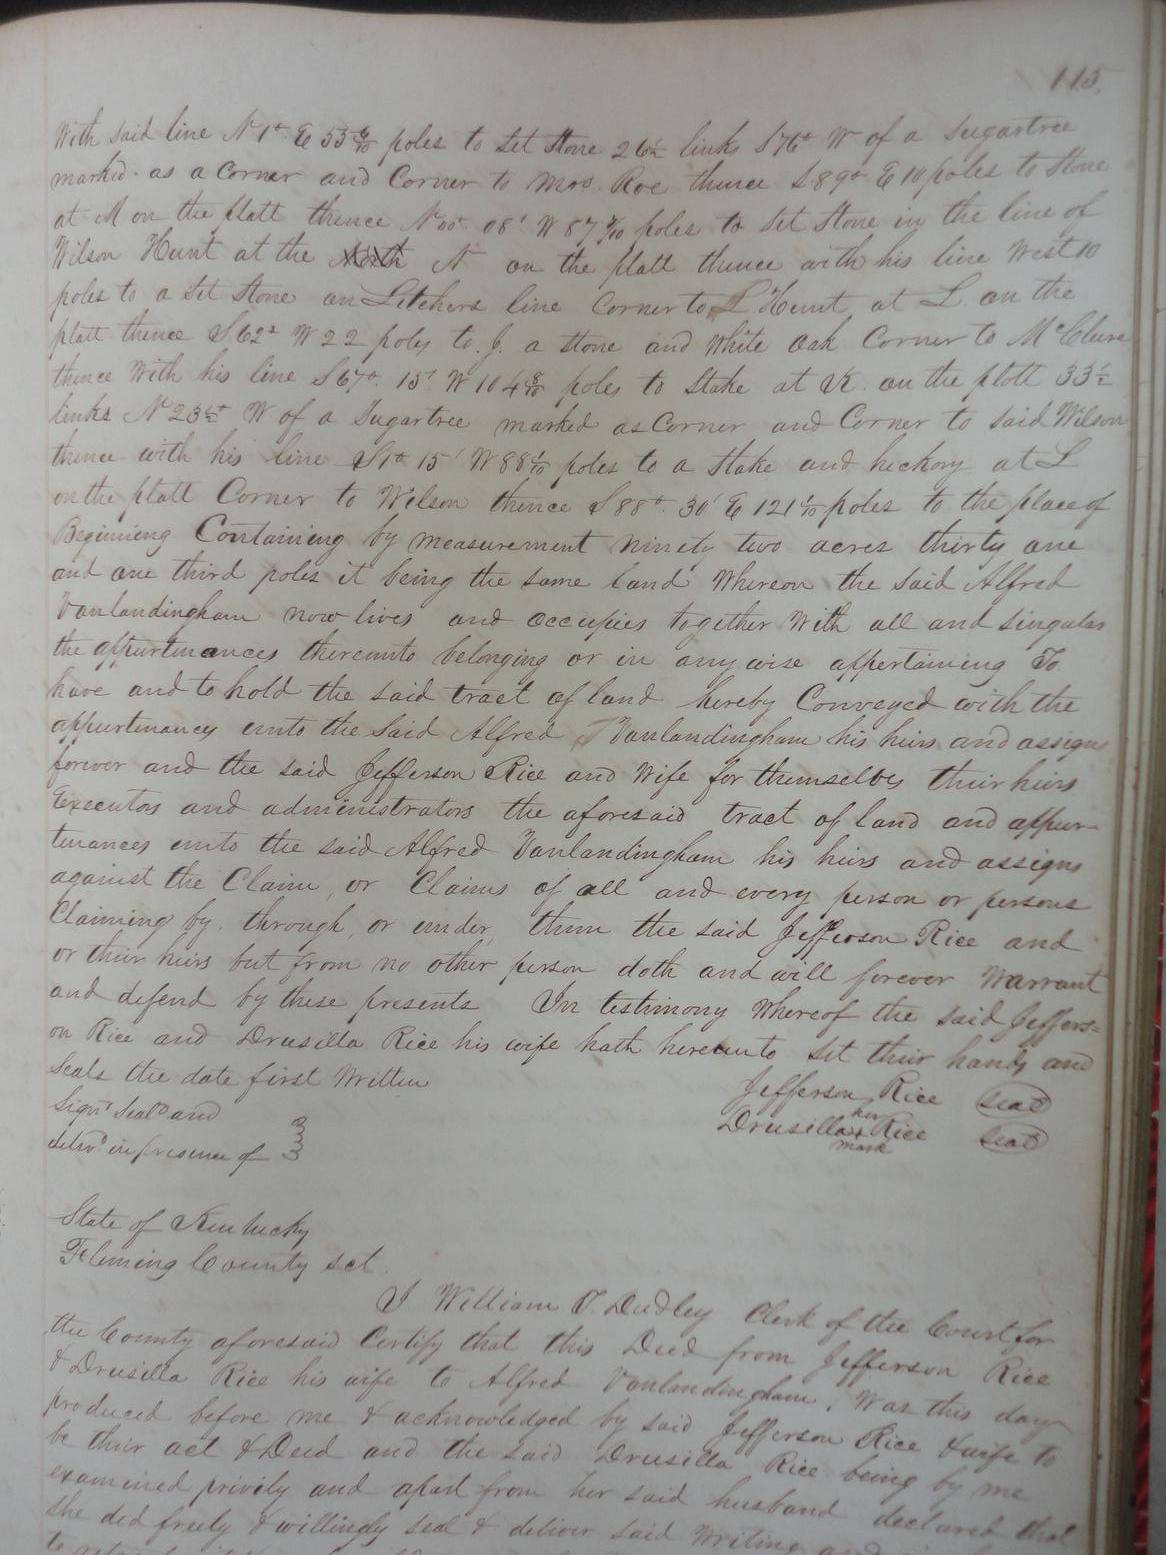 115.
With said line N 1° E 53 6/10 poles to Set Stone 26½ links S76° W of a Sugartree
marked as a Corner and Corner to Mrs. Roe thence S89° E 10 poles to Stone
at M on the platt thence N 00° 08' W 87 poles to Set Stone in the line of
Wilson Hunt at the N on the platt thence with his line West 10
poles to a Set Stone on Letchers line Corner to L Hunt at L on the
platt thence S62° W 22 poles to J. a stone and White Oak Corner to McClure
thence With his line S67° 15' W 104 8/10 poles to Stake at K. on the plott 33½
links N 23½° W of a Sugartree marked as Corner and Corner to said Wilson
thence with his line S1° 15' W 88 1/10 poles to a Stake and hickory at L
on the platt Corner to Wilson thence S88°. 30' E 121 1/10 poles to the place of
Beginning Containing by measurement ninety two acres thirty one
and one third poles it being the same land Whereon the said Alfred
Vanlandingham now lives and occupies together With all and singular
the appurtenances thereunto belonging or in any wise appertaining To
have and to hold the said tract of land hereby Conveyed with the
appurtenances unto the said Alfred Vanlandingham his heirs and assigns
forever and the said Jefferson Rice and Wife for themselves their heirs
Executors and administrators the aforesaid tract of land and appur-
tenances unto the said Alfred Vanlandingham his heirs and assigns
against the Claim, or Claims of all and every person or persons
Claiming by, through, or under, them the said Jefferson Rice and
or their heirs but from no other person doth and will forever Warrant
and defend by these presents In testimony Whereof the said Jeffers=
on Rice and Drusilla Rice his wife hath hereunto set their hands and
Seals the date first Written
Jefferson Rice Seal
Sign'd Seald and
her
Drusilla x Rice Seal
mark
deliv'd in presence of
State of Kentucky
Fleming County sct.
I William T. Dudley Clerk of the Court for
the County aforesaid Certify that this Deed from Jefferson Rice
& Drusilla Rice his wife to Alfred Vanlandingham, Was this day
produced before me & acknowledged by said Jefferson Rice & wife to
be their act & Deed and the said Drusilla Rice being by me
examined privily and apart from her said husband declared that
she did freely & willingly seal & deliver said Writing and
to